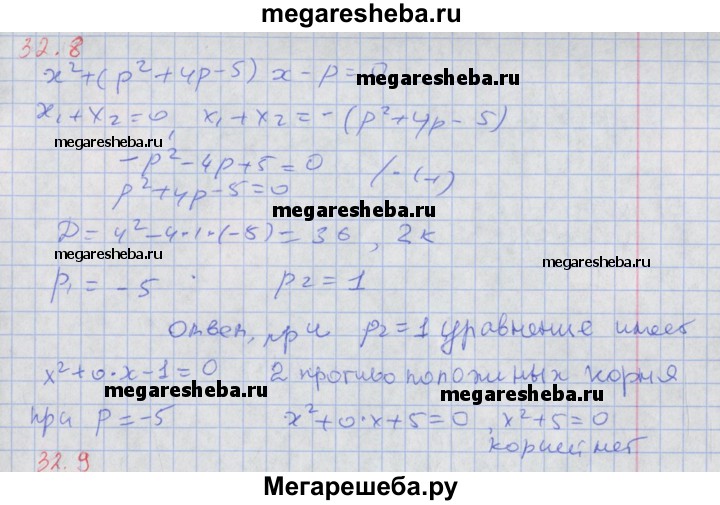 megaresheba.ru
32.8
x²+(p²+4p-5) x-p=0
megaresheba.ru
x₁+x₂=0, x₁+x₂=-(p²+4p-5)
megaresheba.ru
-p²-4p+5=0 /·(-1)
megaresheba.ru
p²+4p-5=0
megaresheba.ru
D=4²-4·1·(-5)=36, 2к
megaresheba.ru
p₁=-5 p₂=1
megaresheba.ru
Ответ, при p₂=1 уравнение имеет
x²+0·x-1=0 2 противоположных корня
megaresheba.ru
megaresheba.ru
при p=-5 x²+0·x+5=0, x²+5=0
корней нет
megaresheba.ru
32.9
Мегарешеба.ру